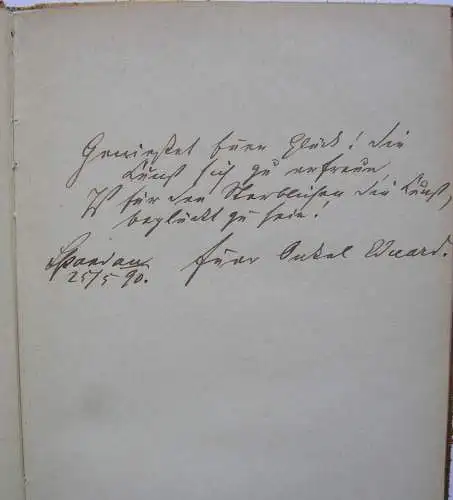 Genießet Euer Glück! die
Kunst sich zu erfreun,
Ist für den Sterblichen die Kunst,
beglückt zu sein!
Spandau Euer Onkel Eduard.
25/5 90.